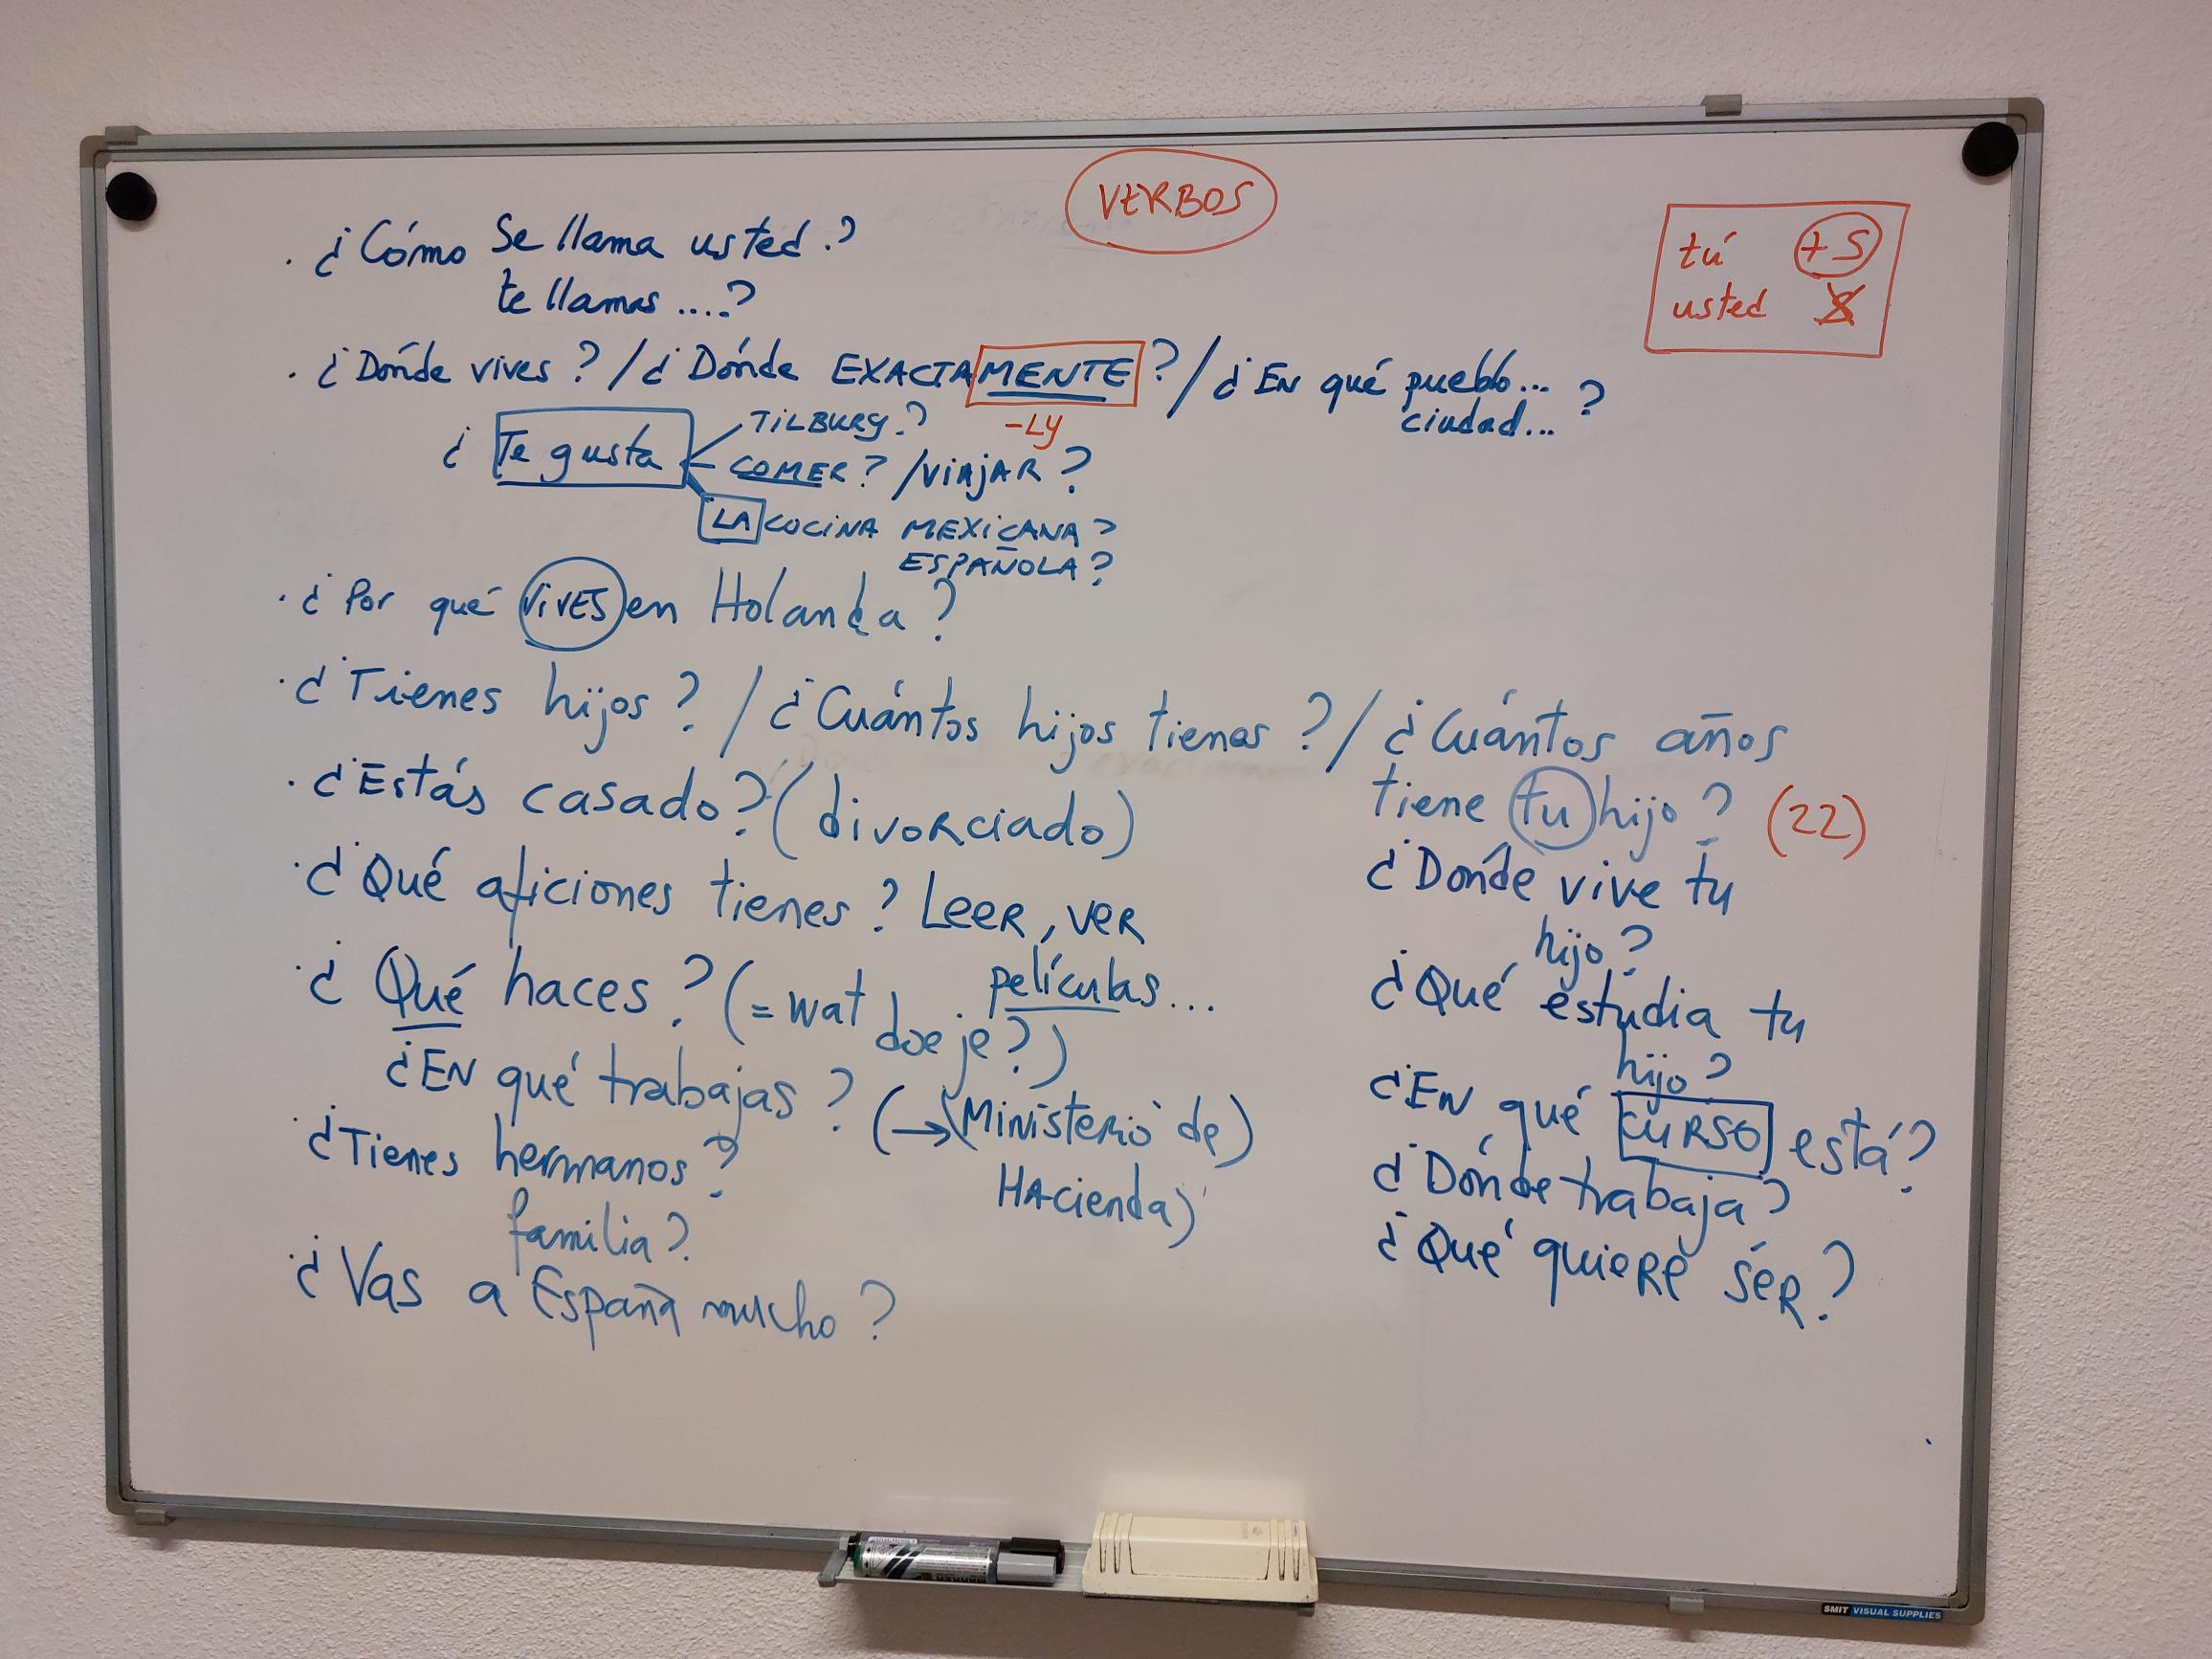 VERBOS
tú +S
usted S
· ¿Cómo se llama usted?
te llamas ....?
· ¿Dónde vives? / ¿Dónde EXACTAMENTE? / ¿EN qué pueblo...
ciudad... ?
-LY
¿Te gusta TILBURG?
COMER? / VIAJAR?
LA COCINA MEXICANA?
ESPAÑOLA?
· ¿Por qué VIVES en Holanda?
· ¿Tienes hijos? / ¿Cuántos hijos tienes? / ¿Cuántos años
tiene tu hijo? (22)
· ¿Estás casado? (divorciado)
· ¿Qué aficiones tienes? LEER, VER
películas...
· ¿Qué haces? (= wat
doe je?)
¿EN qué trabajas? (→(Ministerio de)
HAcienda)
· ¿Tienes hermanos?
familia?
· ¿Vas a España mucho?
¿Dónde vive tu
hijo?
¿Qué estudia tu
hijo?
¿EN qué CURSO está?
¿Dónde trabaja?
¿Qué quiere SER?
SMIT VISUAL SUPPLIES